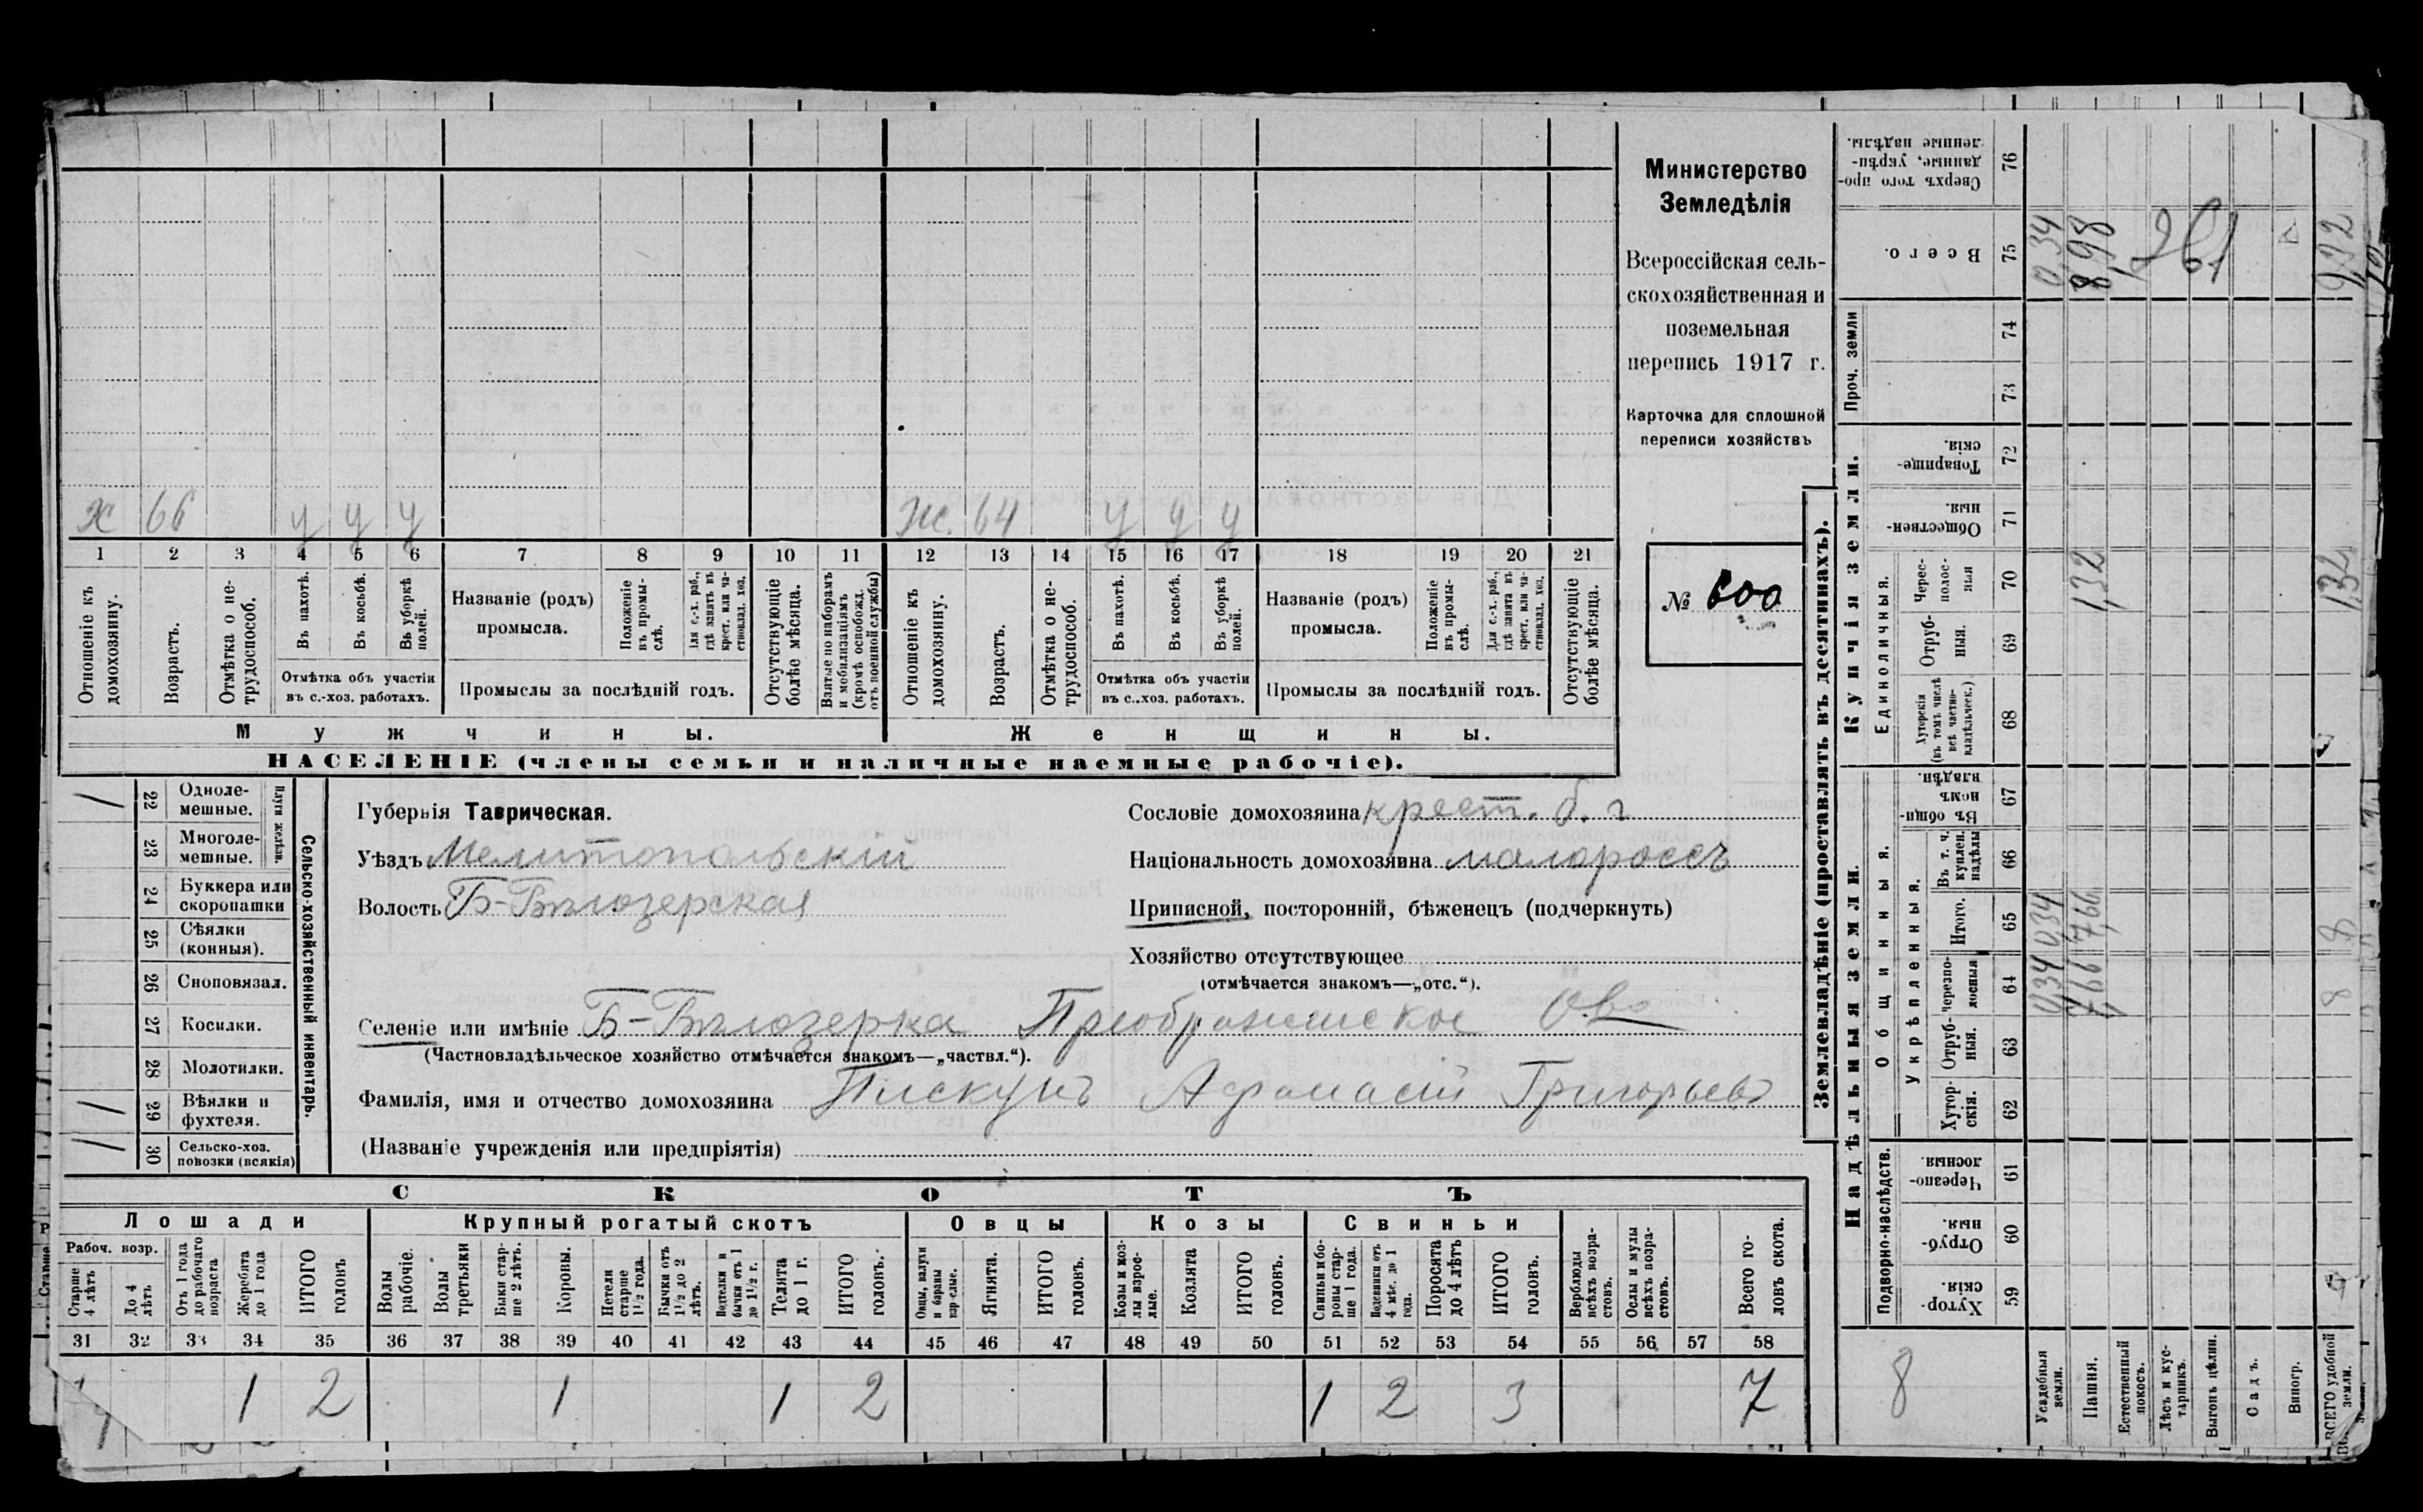 Министерство
Земледѣлія
Всероссійская сель-
скохозяйственная и
поземельная
перепись 1917 г.
Карточка для сплошной
переписи хозяйствъ
№ 600
х 66 у у у Ж. 64 у у у
1 2 3 4 5 6 7 8 9 10 11 12 13 14 15 16 17 18 19 20 21
Отношеніе къ домохозяину.
Возрастъ.
Отмѣтка о не-трудоспособ.
Въ пахотѣ.
Въ косьбѣ.
Въ уборкѣ полей.
Отмѣтка объ участіи
въ с.-хоз. работахъ.
Названіе (родъ)
промысла.
Положеніе въ промы-слѣ.
Для с.-х. раб., гдѣ занятъ въ крест. или ча-стновлад. хоз.
Промыслы за послѣдній годъ.
Отсутствующіе болѣе мѣсяца.
Взятые по наборамъ и мобилизаціямъ (кромѣ освобожд. отъ военной службы)
Отношеніе къ домохозяину.
Возрастъ.
Отмѣтка о не-трудоспособ.
Въ пахотѣ.
Въ косьбѣ.
Въ уборкѣ полей.
Отмѣтка объ участіи
въ с..хоз. работахъ.
Названіе (родъ)
промысла.
Положеніе въ промы-слѣ.
Для с.-х. раб., гдѣ занята въ крест. или ча-стновлад. хоз.
Промыслы за послѣдній годъ.
Отсутствующіе болѣе мѣсяца.
Мужчины.
Женщины.
НАСЕЛЕНІЕ (члены семьи и наличные наемные рабочіе).
22 Одноле-мешные.
23 Многоле-мешные.
Плуги желѣзн.
24 Буккера или скоропашки
25 Сѣялки (конныя).
26 Сноповязал.
27 Косилки.
28 Молотилки.
29 Вѣялки и фухтеля.
30 Сельско-хоз. повозки (всякія)
Сельско-хозяйственный инвентарь.
Губернія Таврическая.
Уѣздъ Мелитопольскій
Волость Б-Бѣлозерская
Сословіе домохозяина крест. б. г
Національность домохозяина малороссъ
Приписной, посторонній, бѣженецъ (подчеркнуть)
Хозяйство отсутствующее
(отмѣчается знакомъ—„отс.“).
Селеніе или имѣніе Б-Бѣлозерка Преображенское О-во
(Частновладѣльческое хозяйство отмѣчается знакомъ—„частвл.“).
Фамилія, имя и отчество домохозяина Пискунъ Афанасій Григорьевъ
(Названіе учрежденія или предпріятія)
СКОТЪ
Лошади
Крупный рогатый скотъ
Овцы
Козы
Свиньи
Рабоч. возр.
Старше 4 лѣтъ
До 4 лѣтъ
Отъ 1 года до рабочаго возраста
Жеребята до 1 года
ИТОГО головъ
Волы рабочіе.
Волы третьяки
Быки стар-ше 2 лѣтъ.
Коровы.
Нетели старше 1 1/2 года.
Бычки отъ 1 1/2 до 2 лѣтъ.
Подтелки и бычки отъ 1 до 1 1/2 г.
Телята до 1 г.
ИТОГО головъ.
Овцы, валухи и бараны взрослые.
Ягнята.
ИТОГО головъ.
Козы и коз-лы взрос-лые.
Козлята
ИТОГО головъ.
Свиньи и бо-ровы стар-ше 1 года.
Подсвинки отъ 4 мѣс. до 1 года.
Поросята до 4 лѣтъ
ИТОГО головъ.
Верблюды всѣхъ возра-стовъ.
Ослы и мулы всѣхъ возра-стовъ.
Всего го-ловъ скота.
31 32 33 34 35 36 37 38 39 40 41 42 43 44 45 46 47 48 49 50 51 52 53 54 55 56 57 58
1 2 1 1 2 1 2 3 7
Землевладѣніе (проставлять въ десятинахъ).
Надѣльныя земли.
Купчія земли.
Проч. земли
Подворно-наслѣдств.
Общинныя.
Укрѣпленныя.
Единоличныя.
59 Хутор-скія
60 Отруб-ныя
61 Черезпо-лосныя
62 Хутор-скія.
63 Отруб-ныя.
64 Черезпо-лосныя
65 Итого.
66 Въ т. ч. куплен. надѣлы
67 Въ общи-номъ владѣн.
68 Хуторскія (въ томъ числѣ всѣ частно-владѣльческ.)
69 Отруб-ныя.
70 Черес-полос-ныя
71 Обществен-ныя.
72 Товарище-скія.
73
74
75 Всего.
76 Сверхъ того про-данные, укрѣп-ленные надѣлы.
Усадебныя земли. 0,34 0,34 0,34
Пашня. 7,66 7,66 1,32 8,98
Естественный покосъ.
Лѣсъ и кус-тарникъ.
Выгонъ цѣлин.
Садъ.
Виногр.
ВСЕГО удобной земли. 8 8 1,32 9,32
8
261